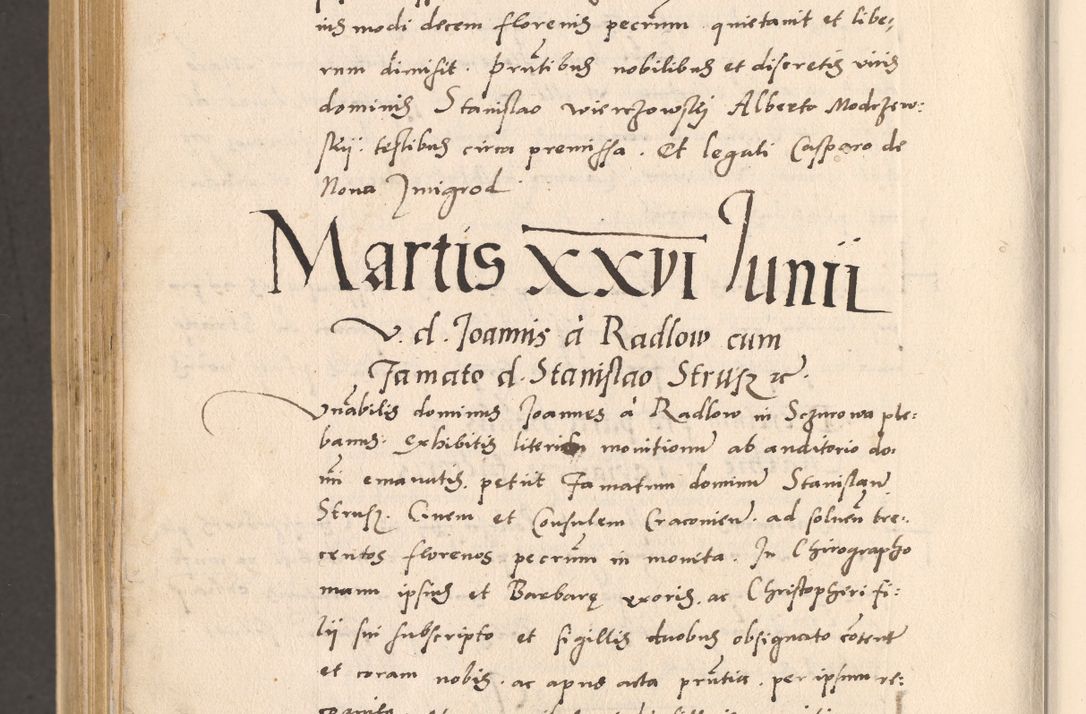 ius modi decem florenis pecuñ. quietavit et libe:
rum dimisit. Pr̃ntibus nobilibus et discretis viris
dominis Stanislao Wierzchowskj Alberto Modrzew:
skij. testibus circa premissa. Et legati Casparo de
Nova Zmigrod
Martis XXVI Junii
V. d. Joannis à Radlow cum
Famato d. Stanislao Strusz ec.
Vnẽabilis dominus Joannes à Radlow in Sczurowa ple:
banus. Exhibitis literis monitionũ ab auditorio do:
ñi emanatis. petiit Famatum dominũ Stanislaũ
Strusz. Civem et Consulem Cracovieñ. ad solvenđ tre:
centos florenos pecuñ in moneta. In Chirographo
manu ipsius et Barbarę uxoris. ac Christopheri fi:
lij sui subscripto et sigillis duobus obsignato cõtent
et coram nobis. ac apud acta pr̃ntia. per ipsum re: